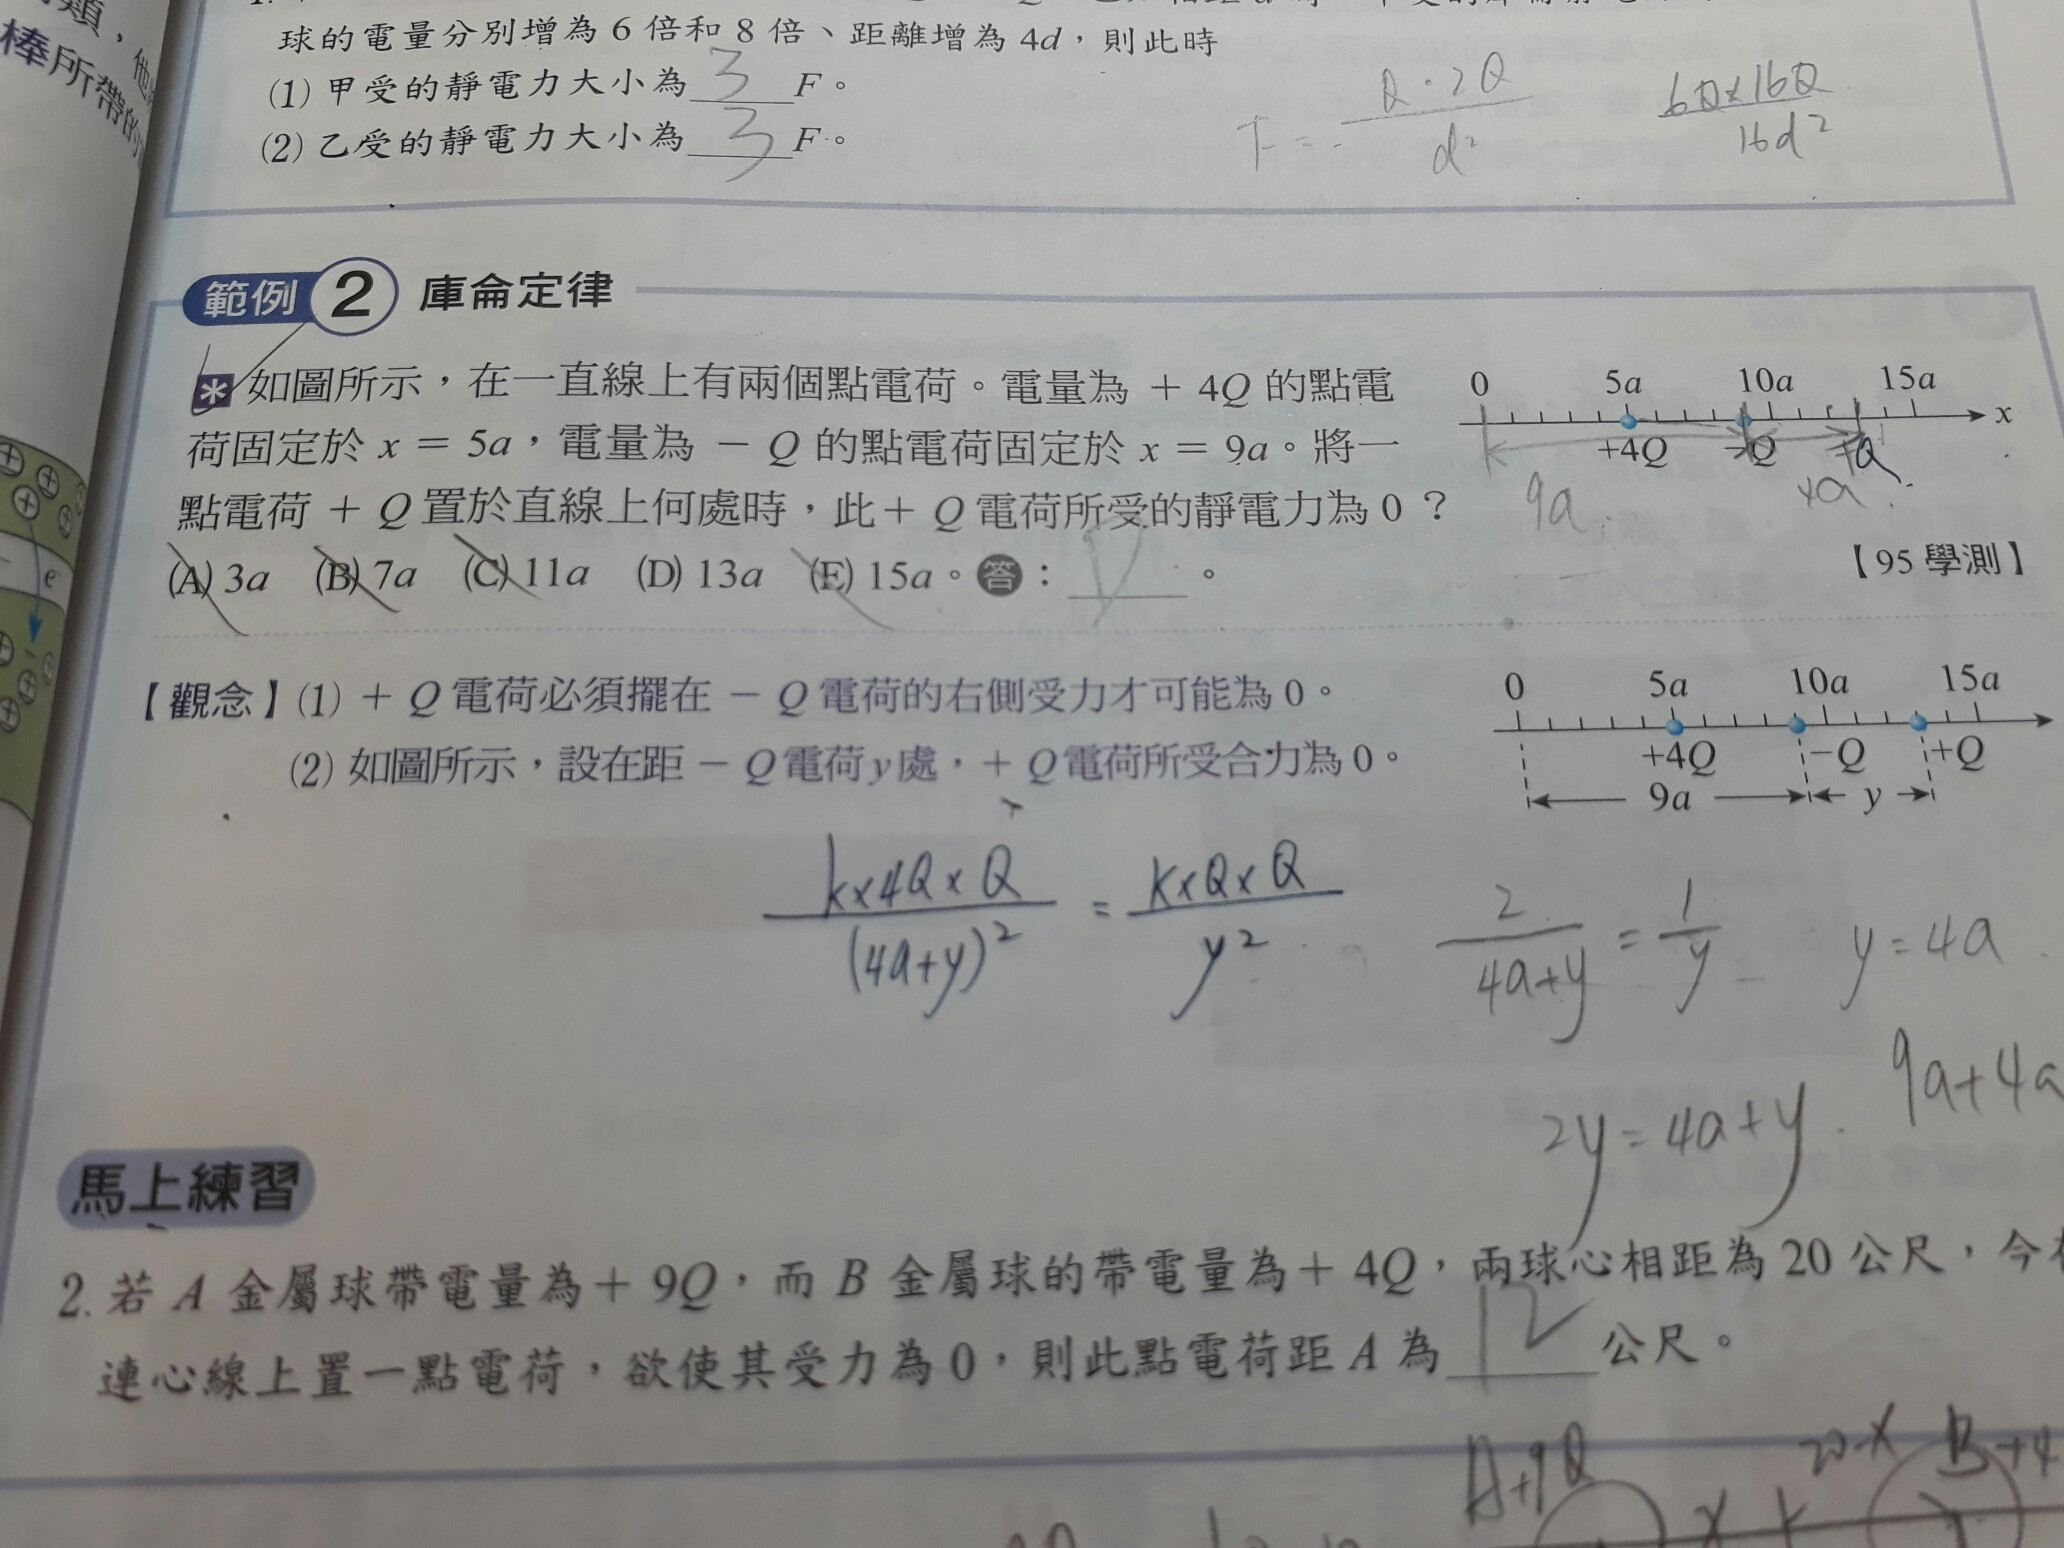 類，他
棒所帶的
球的電量分別增為 6 倍和 8 倍、距離增為 4d，則此時
(1) 甲受的靜電力大小為 3 F。
(2) 乙受的靜電力大小為 3 F。
F = Q·2Q / d²
6Q×16Q / 16d²
範例 2 庫侖定律
* 如圖所示，在一直線上有兩個點電荷。電量為 + 4Q 的點電
荷固定於 x = 5a，電量為 − Q 的點電荷固定於 x = 9a。將一
點電荷 + Q 置於直線上何處時，此+ Q 電荷所受的靜電力為 0？
0 5a 10a 15a x
+4Q −Q +Q
9a 4a
【95 學測】
(A) 3a (B) 7a (C) 11a (D) 13a (E) 15a。答： D 。
【觀念】(1) + Q 電荷必須擺在 − Q 電荷的右側受力才可能為 0。
(2) 如圖所示，設在距 − Q 電荷 y 處，+ Q 電荷所受合力為 0。
0 5a 10a 15a
+4Q −Q +Q
9a y
k×4Q×Q / (4a+y)² = k×Q×Q / y²
2 / 4a+y = 1 / y
y=4a
9a+4a
2y=4a+y
馬上練習
2. 若 A 金屬球帶電量為+ 9Q，而 B 金屬球的帶電量為+ 4Q，兩球心相距為 20 公尺，今
連心線上置一點電荷，欲使其受力為 0，則此點電荷距 A 為 12 公尺。
A+9Q x 20-x B+4
e⁻